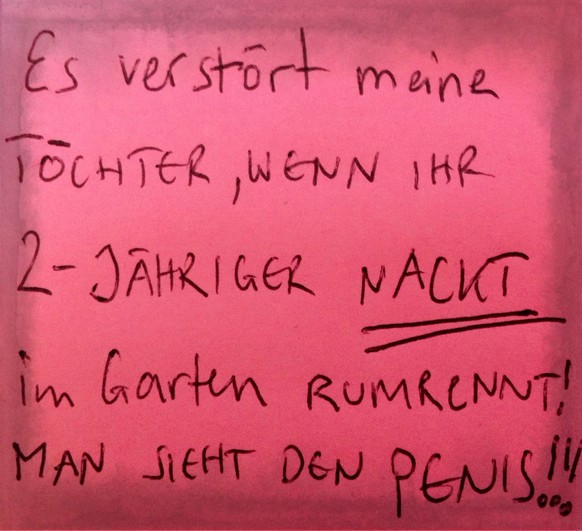 Es verstört meine
TÖCHTER, WENN IHR
2-JÄHRIGER NACKT
im Garten RUMRENNT!
MAN SIEHT DEN PENIS!!!